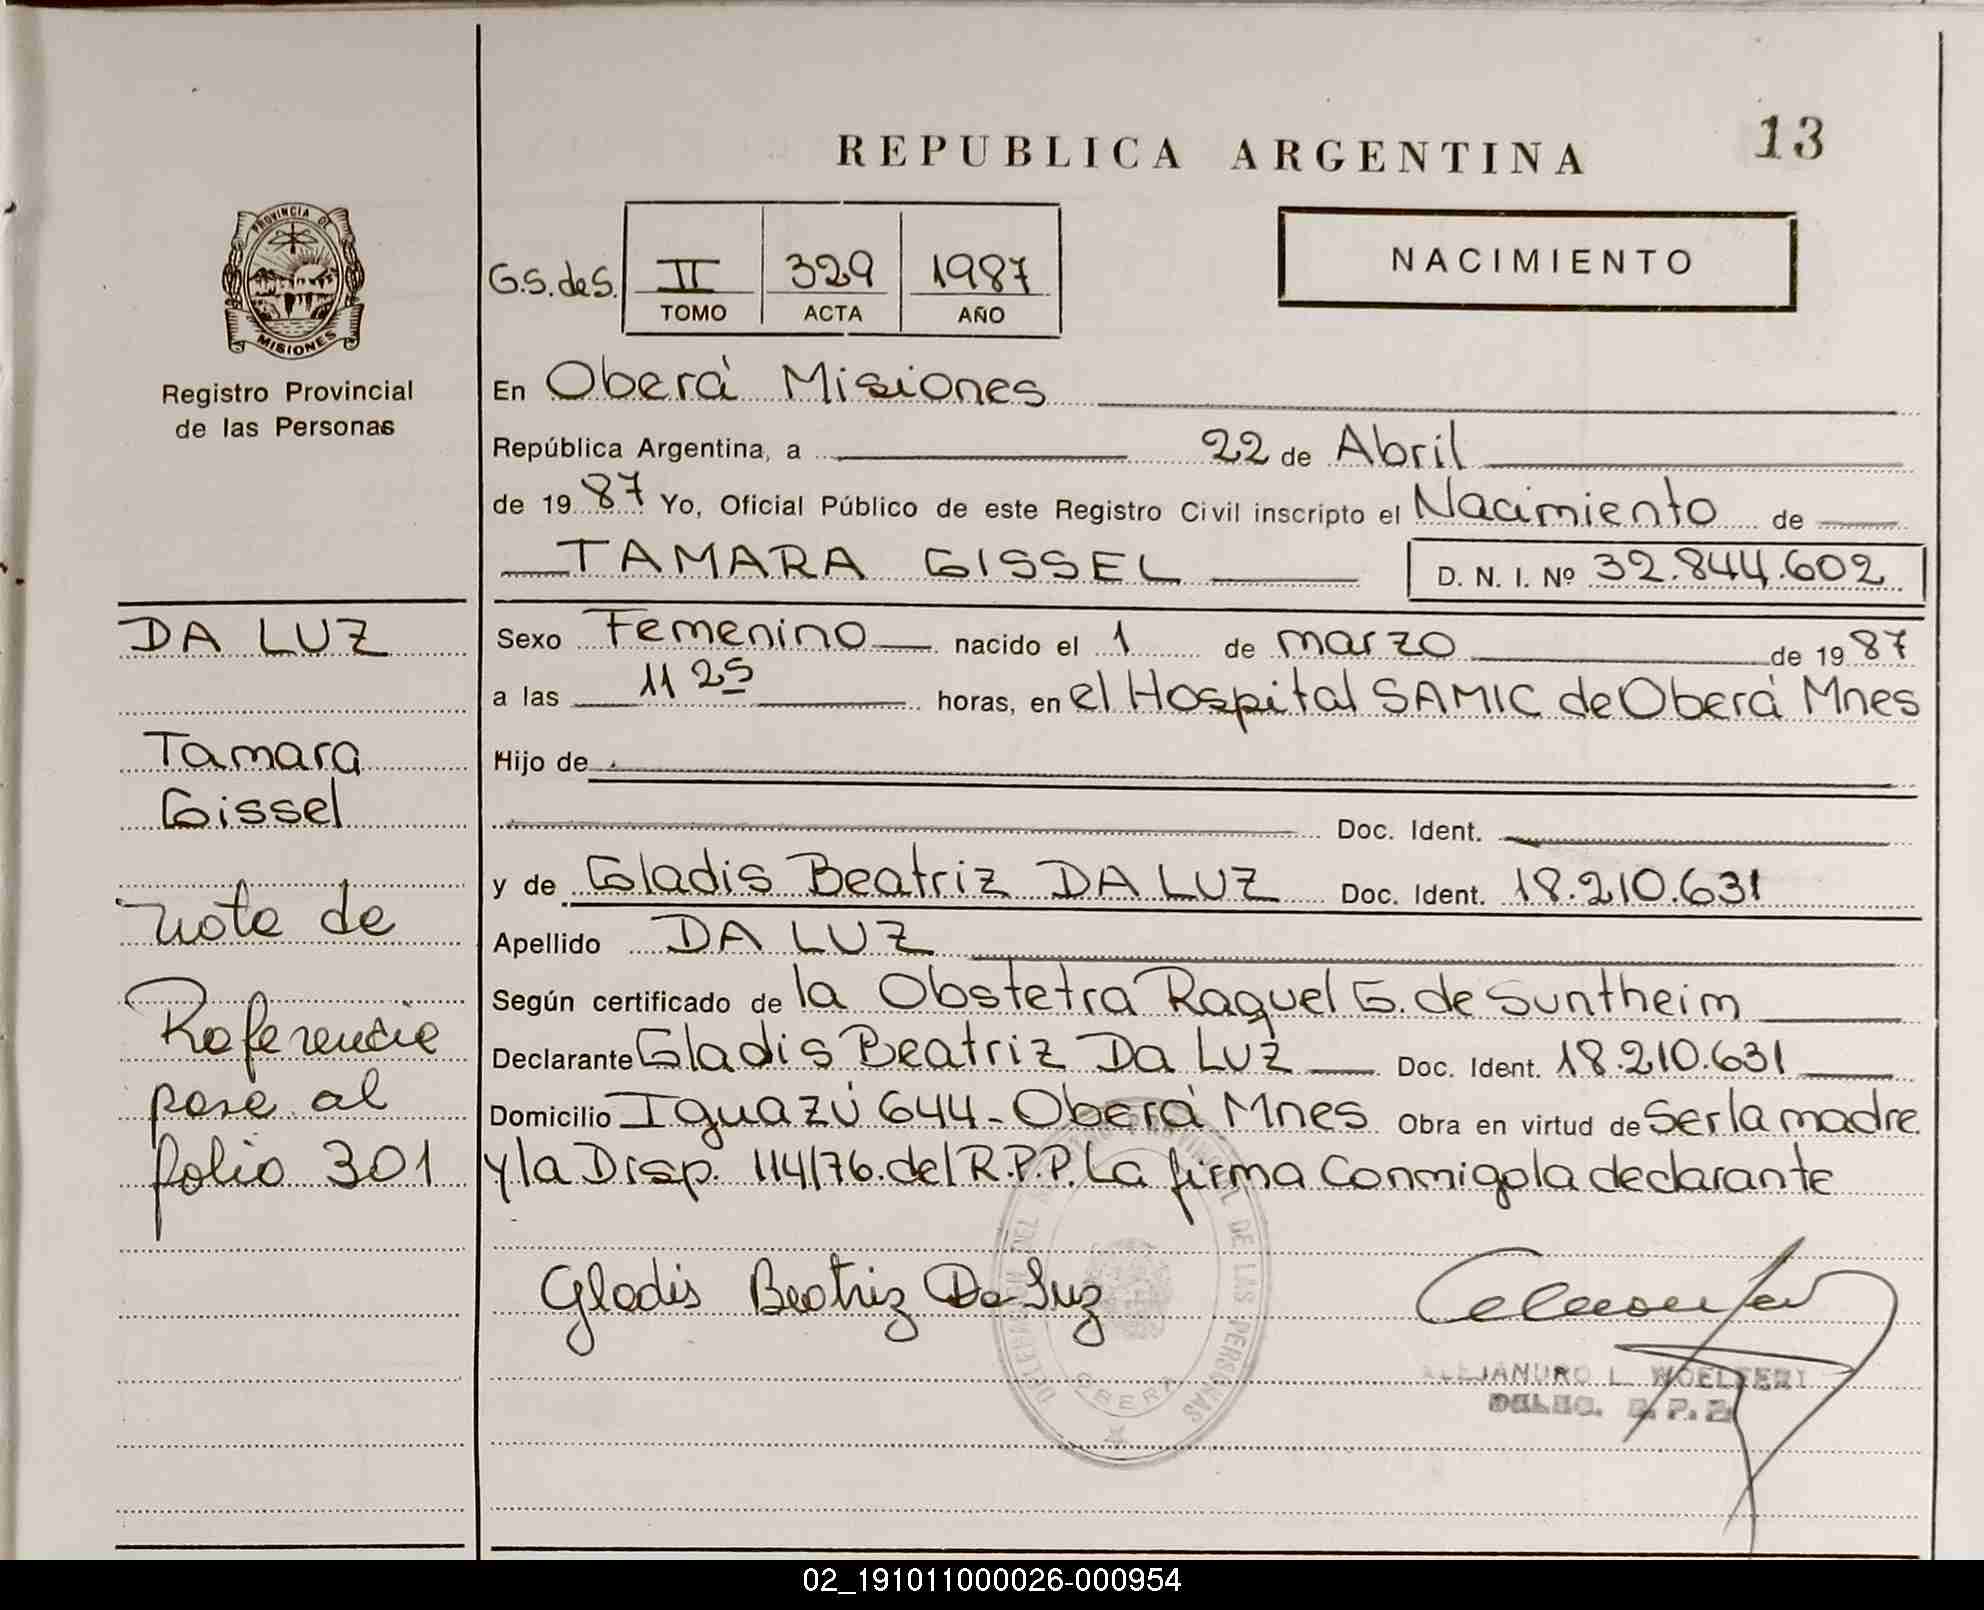 REPUBLICA ARGENTINA
13
PROVINCIA DE
MISIONES
Registro Provincial
de las Personas
G.S. de S.
II
329
1987
TOMO
ACTA
AÑO
NACIMIENTO
En Oberá Misiones
República Argentina, a 22 de Abril
de 19 87 Yo, Oficial Público de este Registro Civil inscripto el Nacimiento de
TAMARA GISSEL
D. N. I. Nº 32.844.602
DA LUZ
Tamara
Gissel
Note de
Referencie
pase al
folio 301
Sexo Femenino nacido el 1 de marzo de 19 87
a las 11 25 horas, en el Hospital SAMIC de Oberá Mnes
Hijo de
Doc. Ident.
y de Gladis Beatriz DA LUZ Doc. Ident. 18.210.631
Apellido DA LUZ
Según certificado de la Obstetra Raquel G. de Suntheim
Declarante Gladis Beatriz Da Luz Doc. Ident. 18.210.631
Domicilio Iguazú 644 - Oberá Mnes Obra en virtud de Ser la madre
y la Disp. 114/76. del R.P.P. La firma Conmigo la declarante
Gladis Beatriz Da Luz
DE LAS PERSONAS
OBERA
ALEJANDRO L.
DELEG. R. P. P.
02_191011000026-000954